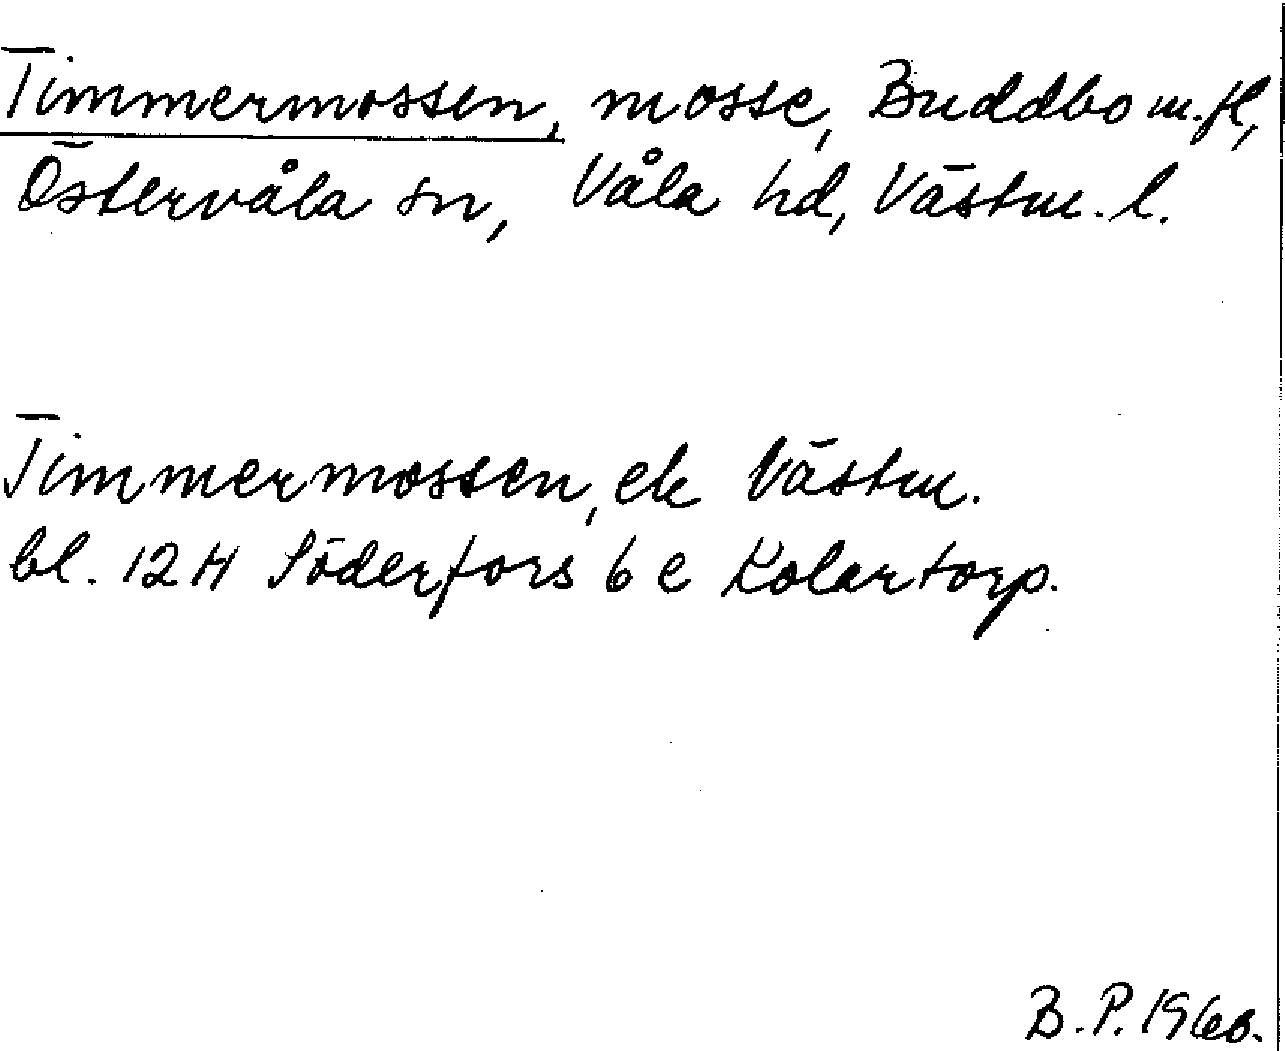 Timmermossen, mosse, Buddbo m.fl,
Östervåla sn, Våla hd, Västm. l.
Timmermossen, ek Västm.
bl. 12 H Söderfors 6 e Kolartorp.
B.P. 1960.